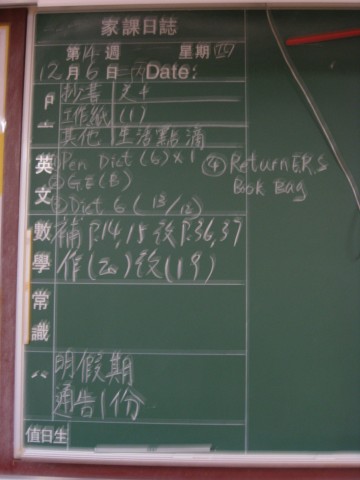 家課日誌
第14週 星期四
12月6日 Date:
抄書 文十
工作紙 (1)
其他 生活點滴
英文 Pen Dict (6) x 1
② G.E (B)
③ Dict 6 (13/12)
④ Return E.R.S
Book Bag
數學 補P.14,15 P.36,37
作(20) (19)
常識
明假期
通告1份
值日生